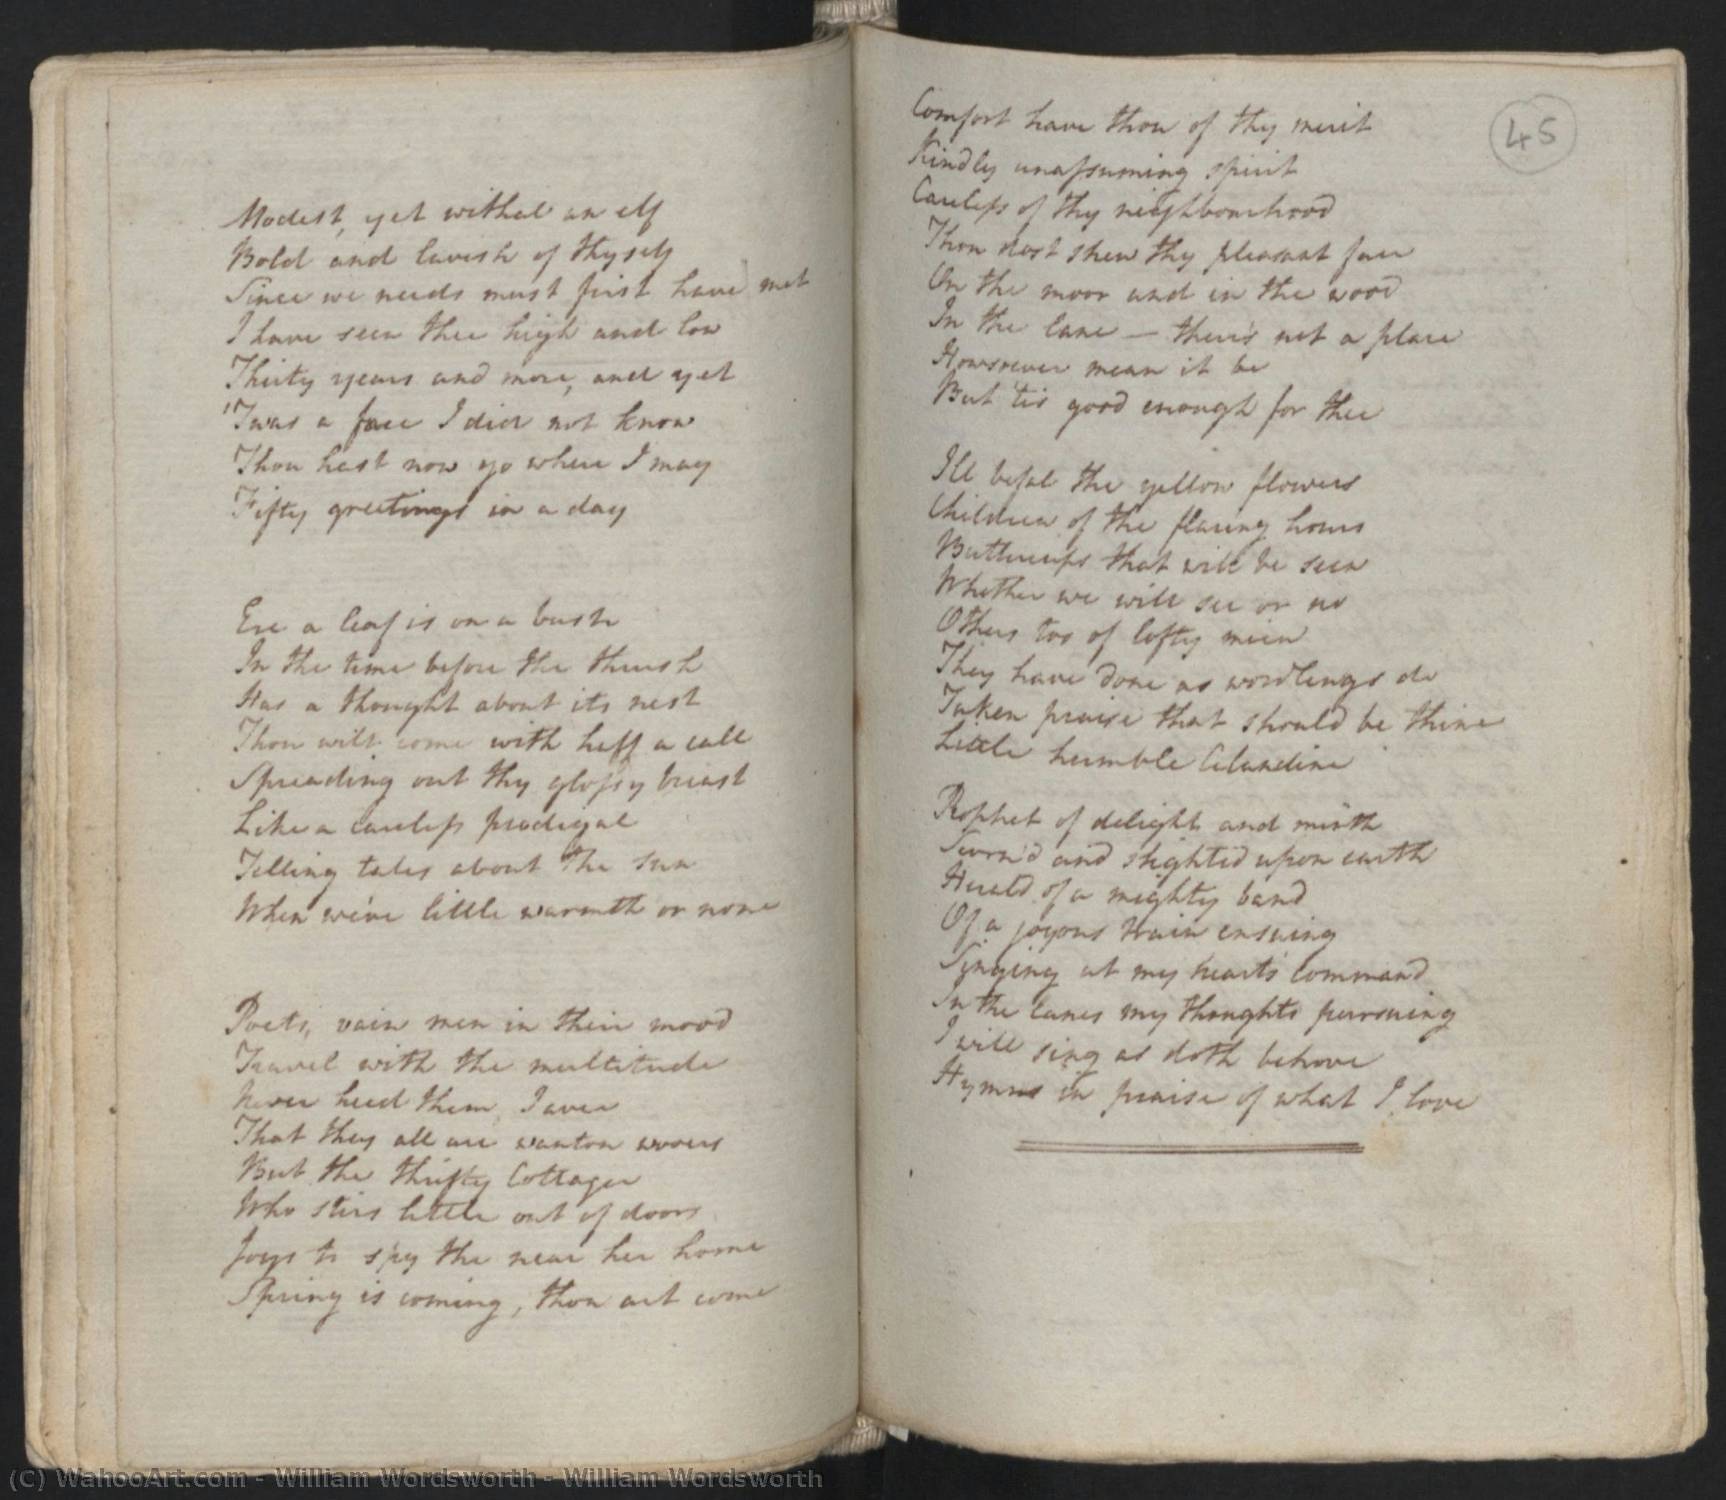 Modest, yet withal an elf
Bold and lavish of thyself
Since we needs must first have met
I have seen thee high and low
Thirty years and more, and yet
'Twas a face I did not know
Thou hast now go where I may
Fifty greetings in a day
Ere a leaf is on a bush
In the time before the thrush
Has a thought about its nest
Thou wilt come with half a call
Spreading out thy glossy breast
Like a careless prodigal
Telling tales about the sun
When we've little warmth or none
Poets, vain men in their mood
Travel with the multitude
Never heed them, I aver
That they all are wanton wooers
But the thrifty Cottager
Who stirs little out of doors
Joys to spy the near her home
Spring is coming, thou art come
45
Comfort have thou of thy merit
Kindly unassuming spirit
Careless of thy neighbourhood
Thou dost shew thy pleasant face
On the moor and in the wood
In the lane — there's not a place
Howsoever mean it be
But 'tis good enough for thee
Ill befal the yellow flowers
Children of the flaring hours
Buttercups that will be seen
Whether we will see or no
Others too of lofty mien
They have done as wordlings do
Taken praise that should be thine
Little humble Celandine
Prophet of delight and mirth
Scorn'd and slighted upon earth
Herald of a mighty band
Of a joyous train ensuing
Singing at my heart's command
In the lanes my thoughts pursuing
I will sing as doth behove
Hymns in praise of what I love
(C) WahooArt.com - William Wordsworth - William Wordsworth